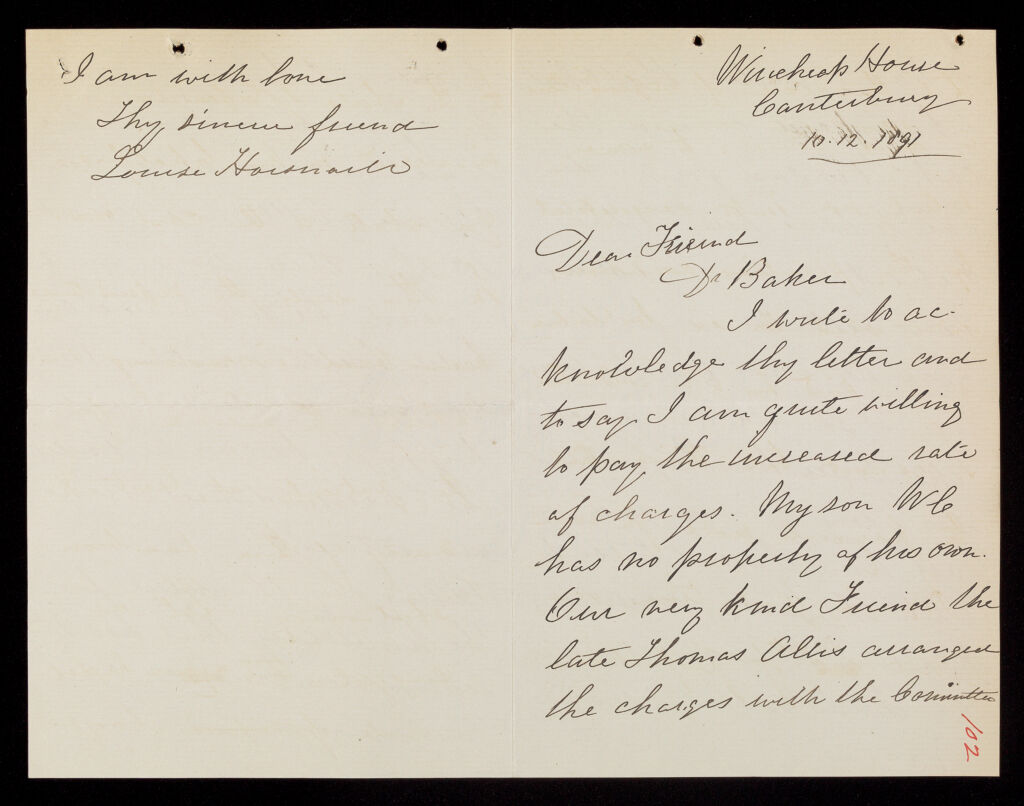 I am with love
Thy sincere friend
Louise Horsnaill
Wincheap House
Canterbury
10.12.1891
Dear Friend
Dr Baker
I write to ac-
knowledge thy letter and
to say I am quite willing
to pay the increased rate
of charges. My son WC
has no property of his own.
Our very kind Friend the
late Thomas Allis arranged
the charges with the Committee
102